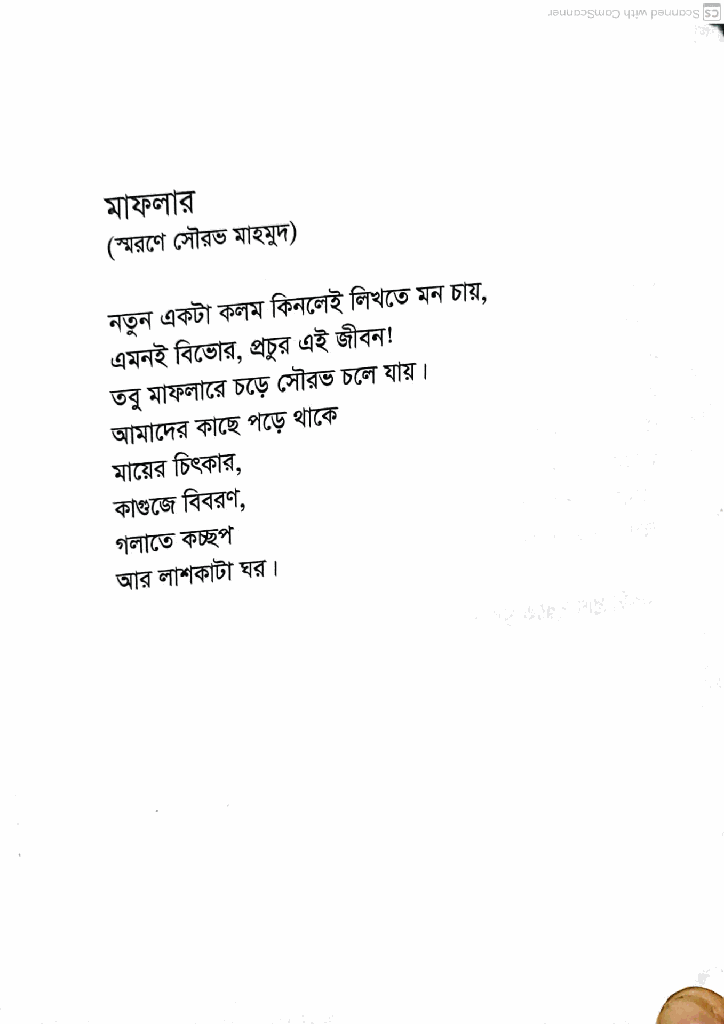 Scanned with CamScanner
CS
মাফলার
(স্মরণে সৌরভ মাহমুদ)
নতুন একটা কলম কিনলেই লিখতে মন চায়,
এমনই বিভোর, প্রচুর এই জীবন!
তবু মাফলারে চড়ে সৌরভ চলে যায়।
আমাদের কাছে পড়ে থাকে
মায়ের চিৎকার,
কাগুজে বিবরণ,
গলাতে কচ্ছপ
আর লাশকাটা ঘর।